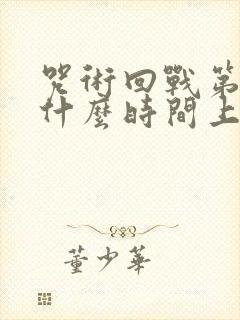 咒術回戰第
什麼時間上
董少華